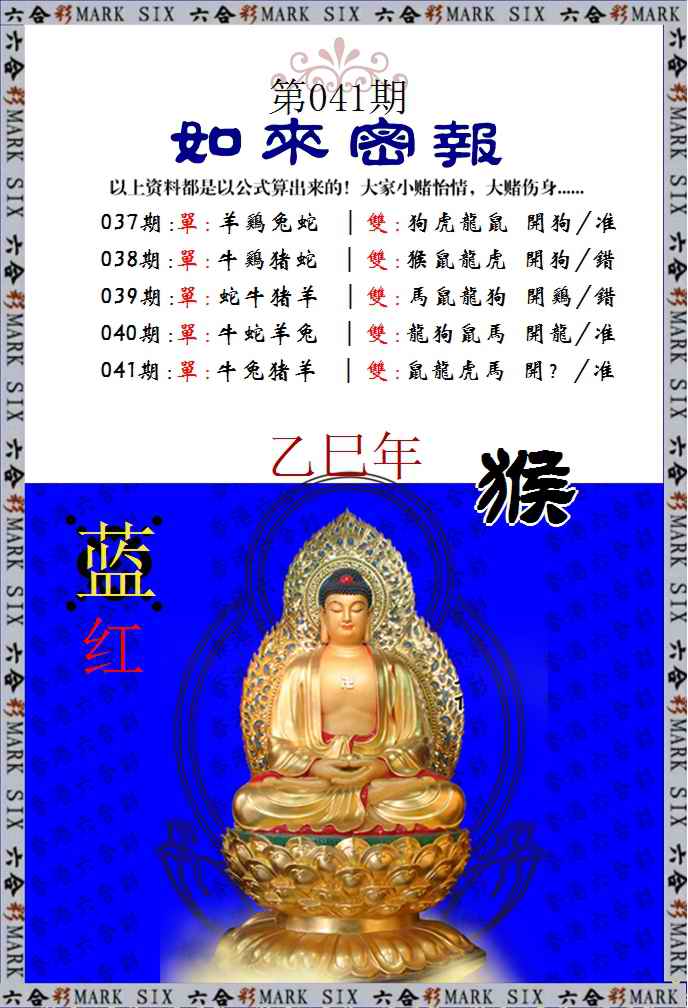 六合彩MARK SIX 六合彩MARK SIX 六合彩MARK SIX 六合彩MARK SIX 六合彩MARK SIX
第041期
如來密報
以上资料都是以公式算出来的！大家小赌怡情，大赌伤身......
037期:單:羊鷄兔蛇 | 雙:狗虎龍鼠 開狗/准
038期:單:牛鷄猪蛇 | 雙:猴鼠龍虎 開狗/錯
039期:單:蛇牛猪羊 | 雙:馬鼠龍狗 開鷄/錯
040期:單:牛蛇羊兔 | 雙:龍狗鼠馬 開龍/准
041期:單:牛兔猪羊 | 雙:鼠龍虎馬 開?/准
乙巳年
猴
蓝
红
六合彩MARK SIX 六合彩MARK SIX 六合彩MARK SIX 六合彩MARK SIX 六合彩MARK SIX